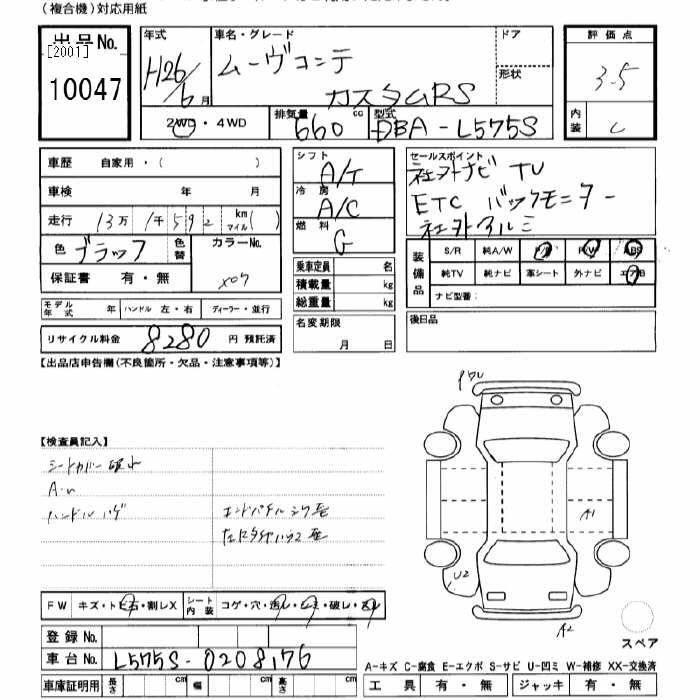 (複合機)対応用紙
出品No.
[2001]
10047
年式
H26/6月
車名・グレード
ムーヴコンテ
カスタムRS
ドア
形状
評価点
3.5
内装
C
2WD・4WD
排気量
660cc
型式
DBA-L575S
車歴 自家用・( )
車検 年 月
走行 13万 1千592 km マイル( )
色 ブラック
色替
カラーNo.
X07
保証書 有・無
モデル年式 年 ハンドル 左・右 ディーラー・並行
リサイクル料金 8280 円 預託済
シフト
A/T
冷房
A/C
燃料
G
乗車定員 名
積載量 kg
総重量 kg
名変期限
月 日
セールスポイント
社外ナビ TV
ETC バックモニター
社外アルミ
装備品
S/R 純A/W P/S P/W ABS
純TV 純ナビ 革シート 外ナビ エアB
ナビ型番:
後日品
【出品店申告欄(不良箇所・欠品・注意事項等)】
【検査員記入】
シートカバー破れ
ハンドルハゲ
A1
U2
A2
FW キズ・トビ石・割レX
シート内装 コゲ・穴・透レ・シミ・破レ・汚レ
登録No.
車台No. L575S-0208176
車庫証明用 長さ cm 幅 cm 高さ cm
スペア
A-キズ C-腐食 E-エクボ S-サビ U-凹ミ W-補修 XX-交換済
工具 有・無 ジャッキ 有・無